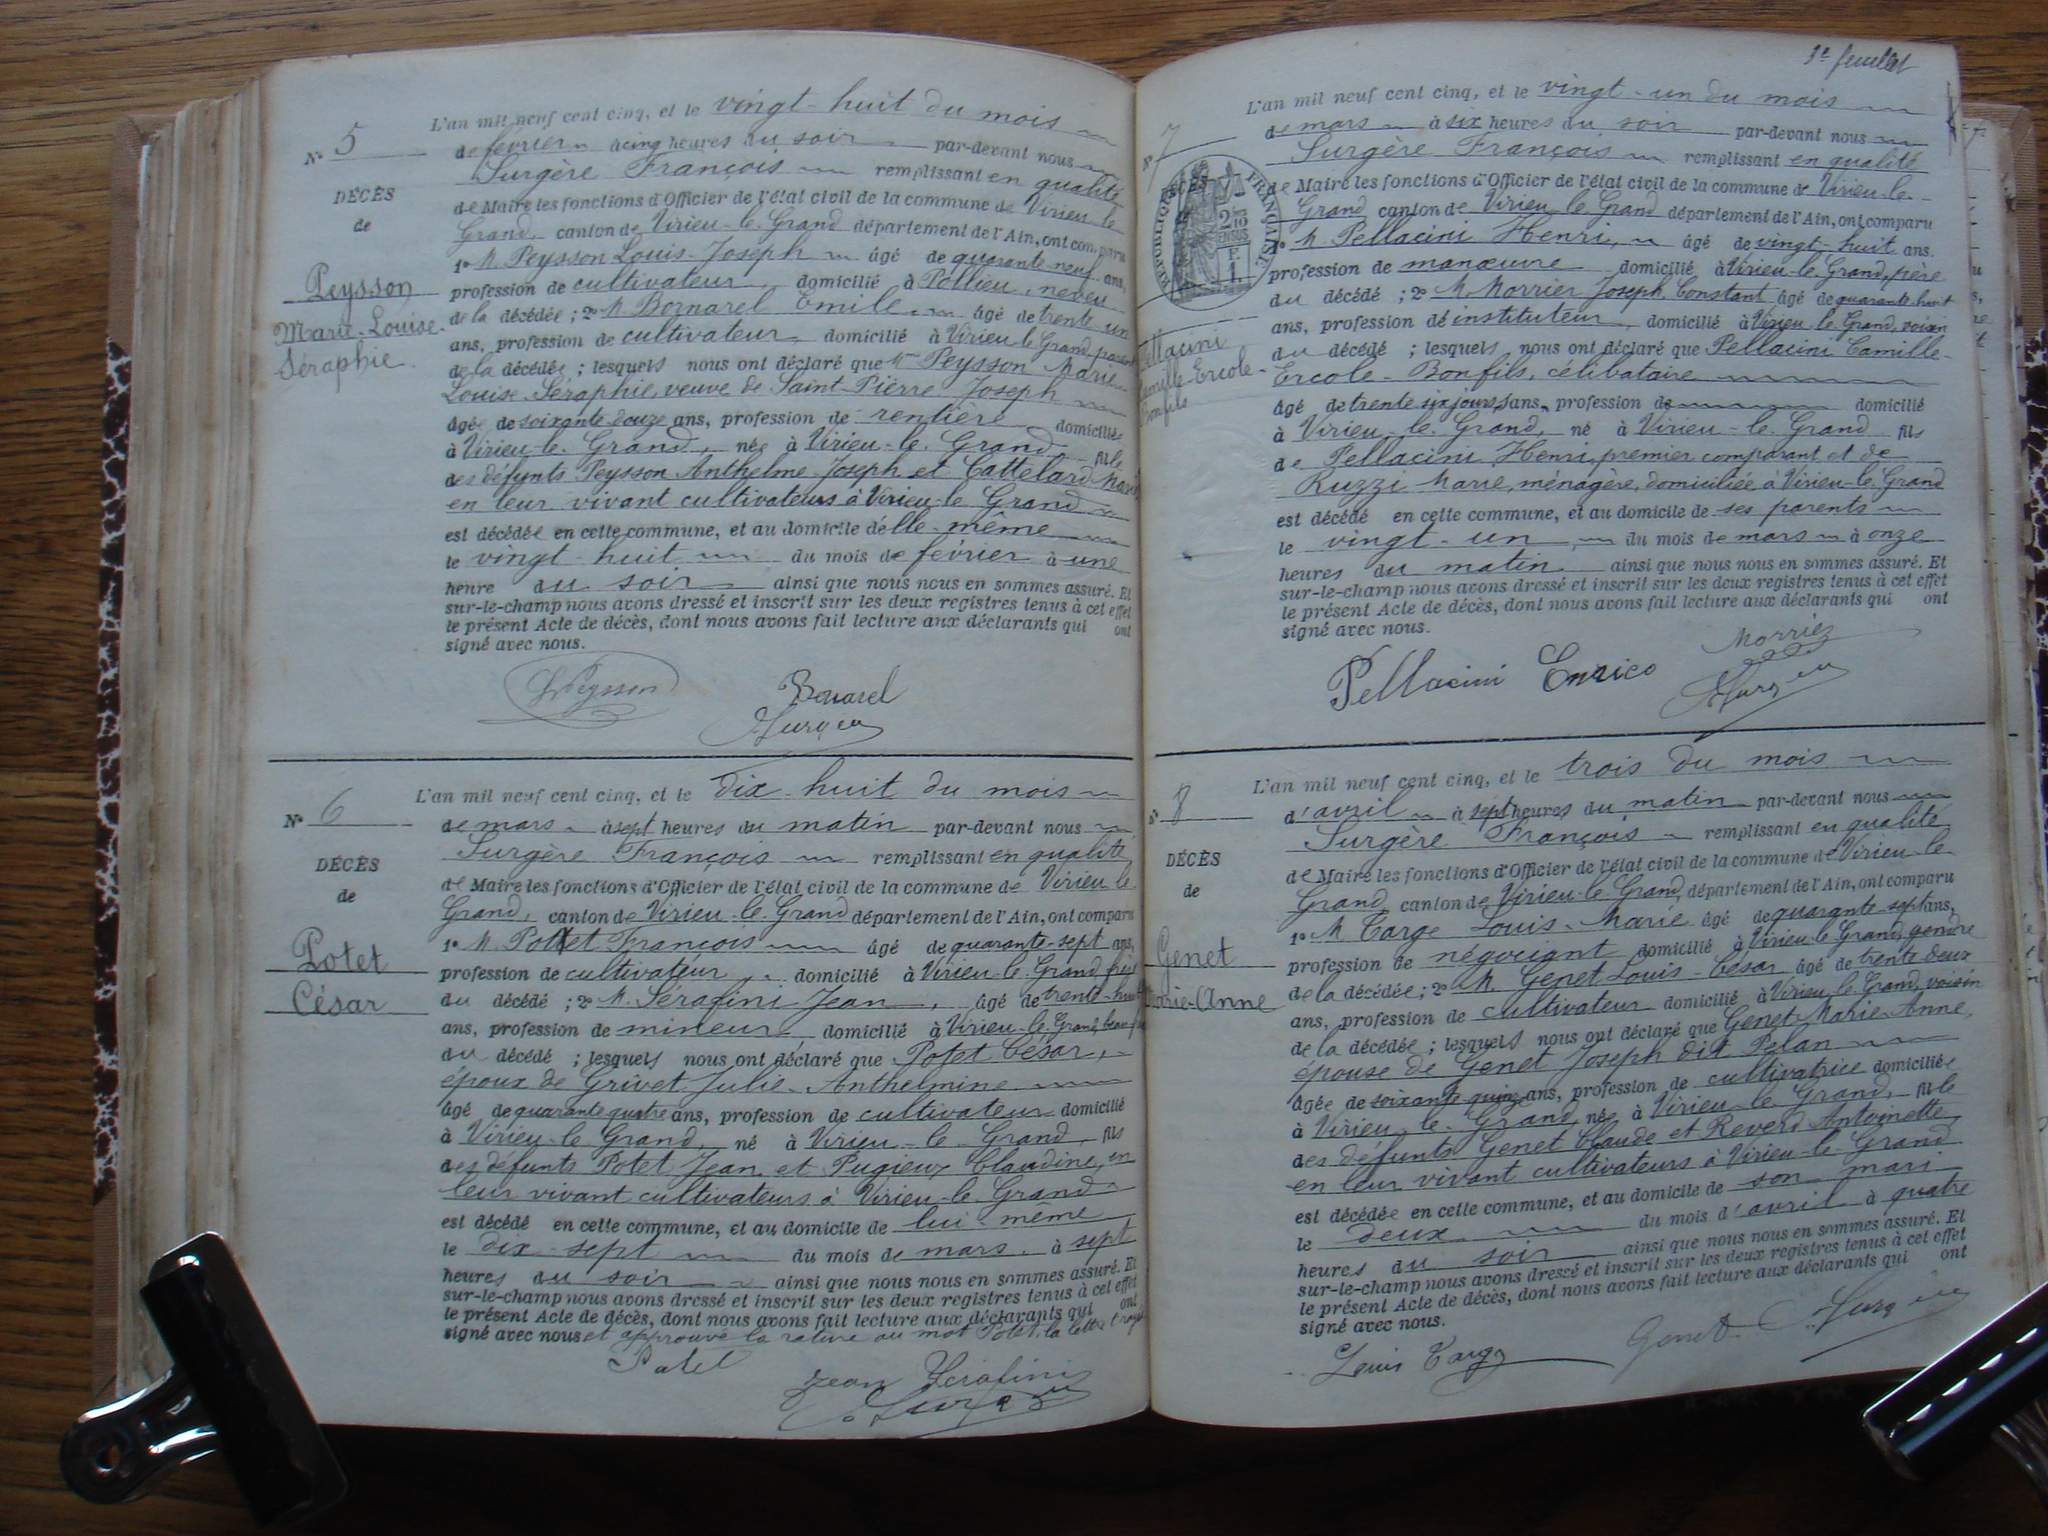 L'an mil neuf cent cinq, et le vingt-huit du mois
N° 5
de février à cinq heures du soir par-devant nous
Surgère François remplissant en qualité
DÉCÈS
de Maire les fonctions d'Officier de l'état civil de la commune de Virieu le
de
Grand, canton de Virieu-le-Grand département de l'Ain, ont comparu
1° M. Peysson Louis-Joseph âgé de quarante neuf ans,
Peysson
profession de cultivateur, domicilié à Pollieu, neveu
Marie-Louise-
de la décédée ; 2° M. Bornarel Emile âgé de trente un
Séraphie
ans, profession de cultivateur domicilié à Virieu le Grand, parent
de la décédée ; lesquels nous ont déclaré que Mme Peysson Marie
Louise-Séraphie, veuve de Saint-Pierre Joseph
âgée de soixante douze ans, profession de rentière domiciliée
à Virieu-le-Grand, née à Virieu-le-Grand fille
des défunts Peysson Anthelme-Joseph et Cattelard Marie
en leur vivant cultivateurs à Virieu-le Grand
est décédée en cette commune, et au domicile d'elle-même
le vingt-huit du mois de février à une
heure du soir ainsi que nous nous en sommes assuré. Et
sur-le-champ nous avons dressé et inscrit sur les deux registres tenus à cet effet
le présent Acte de décès, dont nous avons fait lecture aux déclarants qui ont
signé avec nous.
Peysson Bonarel
Surgère
L'an mil neuf cent cinq, et le dix-huit du mois
N° 6
de mars à sept heures du matin par-devant nous
Surgère François remplissant en qualité
DÉCÈS
de Maire les fonctions d'Officier de l'état civil de la commune de Virieu le
de
Grand, canton de Virieu-le-Grand département de l'Ain, ont comparu
Potet
1° M. Pottet François âgé de quarante-sept ans,
profession de cultivateur domicilié à Virieu-le-Grand, frère
César
du décédé ; 2° M. Sérafini Jean, âgé de trente-huit
ans, profession de mineur domicilié à Virieu-le-Grand, beau-frère
du décédé ; lesquels nous ont déclaré que Potet César,
époux de Grivet Julie-Anthelmine
âgé de quarante quatre ans, profession de cultivateur domicilié
à Virieu-le Grand, né à Virieu-le-Grand, fils
des défunts Potet Jean et Pugieux Claudine, en
leur vivant cultivateurs à Virieu-le Grand
est décédé en cette commune, et au domicile de lui-même
le dix-sept du mois de mars à sept
heures du soir ainsi que nous nous en sommes assuré. Et
sur-le-champ nous avons dressé et inscrit sur les deux registres tenus à cet effet
le présent Acte de décès, dont nous avons fait lecture aux déclarants qui ont
signé avec nous et approuvé la rature au mot Potet, la lettre t rayé
Potet
Jean Serafini
Surgère
9e feuillet
L'an mil neuf cent cinq, et le vingt-un du mois
N° 7
de mars à six heures du soir par-devant nous
Surgère François remplissant en qualité
DÉCÈS
RÉPUBLIQUE FRANÇAISE
2/10 EN SUS
F. 1
de Maire les fonctions d'Officier de l'état civil de la commune de Virieu-le-
Grand canton de Virieu le Grand département de l'Ain, ont comparu
1° M. Pellacini Henri, âgé de vingt-huit ans
profession de manœuvre domicilié à Virieu-le-Grand, père
du décédé ; 2° M. Morrier Joseph Constant âgé de quarante-huit
ans, profession de instituteur, domicilié à Virieu le Grand, voisin
Pellacini
Camille-Ercole-
Bonfils
du décédé ; lesquels nous ont déclaré que Pellacini Camille-
Ercole-Bonfils, célibataire
âgé de trente six jours, ans, profession de domicilié
à Virieu-le-Grand, né à Virieu-le-Grand fils
de Pellacini Henri, premier comparant et de
Ruzzi Marie, ménagère, domiciliée à Virieu-le-Grand
est décédé en cette commune, et au domicile de ses parents
le vingt-un du mois de mars à onze
heures du matin ainsi que nous nous en sommes assuré. Et
sur-le-champ nous avons dressé et inscrit sur les deux registres tenus à cet effet
le présent Acte de décès, dont nous avons fait lecture aux déclarants qui ont
signé avec nous.
Morrier
Pellacini Enrico
Surgère
L'an mil neuf cent cinq, et le trois du mois
N° 8
d'avril à sept heures du matin par-devant nous
Surgère François remplissant en qualité
DÉCÈS
de Maire les fonctions d'Officier de l'état civil de la commune de Virieu-le
de
Grand canton de Virieu-le-Grand, département de l'Ain, ont comparu
1° M. Targe Louis-Marie âgé de quarante sept ans,
Genet
profession de négociant domicilié à Virieu-le-Grand, gendre
Marie-Anne
de la décédée ; 2° M. Genet Louis-César âgé de trente deux
ans, profession de cultivateur domicilié à Virieu-le Grand, voisin
de la décédée ; lesquels nous ont déclaré que Genet Marie-Anne,
épouse de Genet Joseph dit Pelan
âgée de soixante quinze ans, profession de cultivatrice domiciliée
à Virieu-le-Grand, née à Virieu-le Grand, fille
des défunts Genet Claude et Reverd Antoinette
en leur vivant cultivateurs à Virieu-le-Grand
est décédée en cette commune, et au domicile de son mari
le deux du mois d'avril à quatre
heures du soir ainsi que nous nous en sommes assuré. Et
sur-le-champ nous avons dressé et inscrit sur les deux registres tenus à cet effet
le présent Acte de décès, dont nous avons fait lecture aux déclarants qui ont
signé avec nous.
Louis Targe Genet Surgère